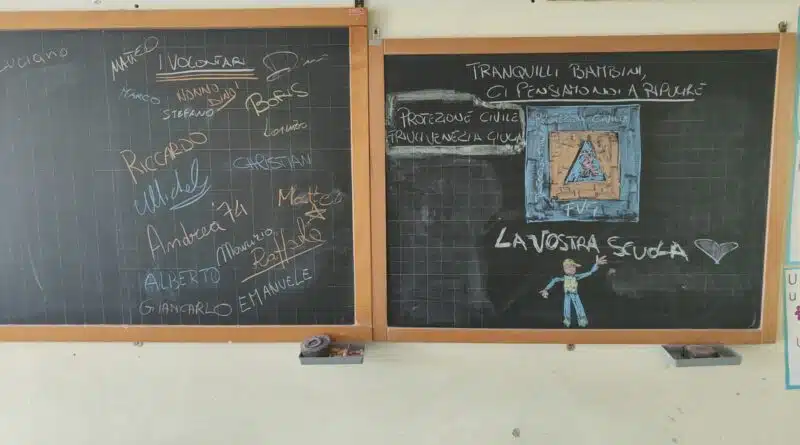 Luciano
MATTEO
I VOLONTARI
MARCO
NONNO
DINO
BORIS
STEFANO
Lorenzo
RICCARDO
CHRISTIAN
Michel
Matteo
Andrea '74
Maurizio
Raffaele
ALBERTO
GIANCARLO
EMANUELE
TRANQUILLI BAMBINI,
CI PENSIAMO NOI A RIPULIRE
PROTEZIONE CIVILE
FRIULI VENEZIA GIULIA
PROTEZIONE CIVILE
FVG
LA VOSTRA SCUOLA